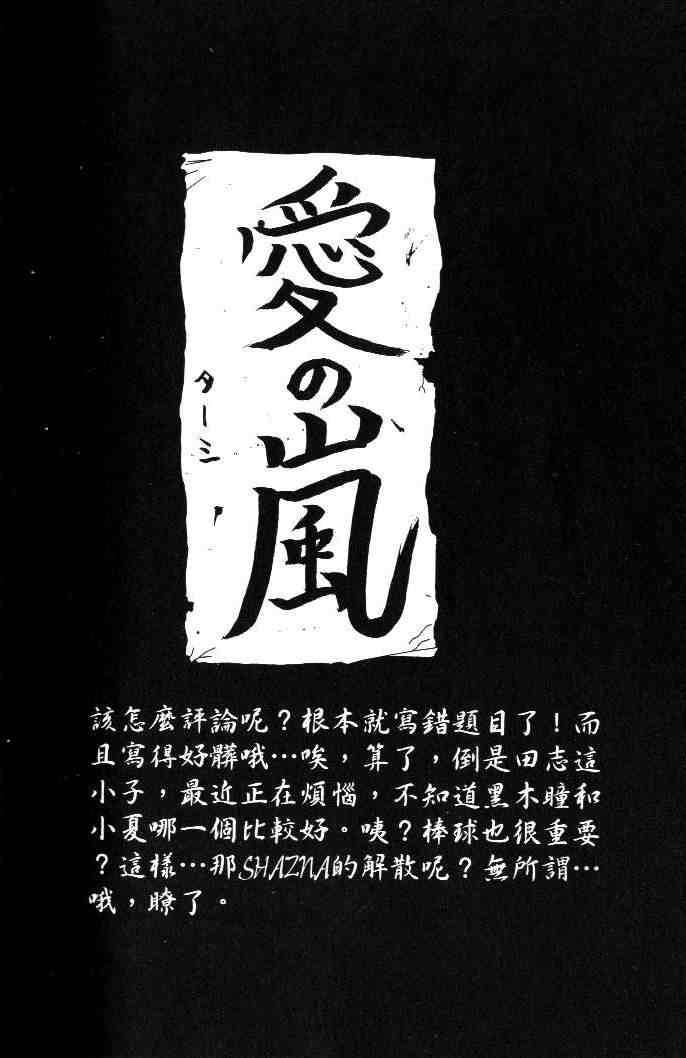 愛の嵐
ターシ
該怎麼評論呢？根本就寫錯題目了！而
且寫得好髒哦…唉，算了，倒是田志這
小子，最近正在煩惱，不知道黑木瞳和
小夏哪一個比較好。咦？棒球也很重要
？這樣…那SHAZNA的解散呢？無所謂…
哦，瞭了。